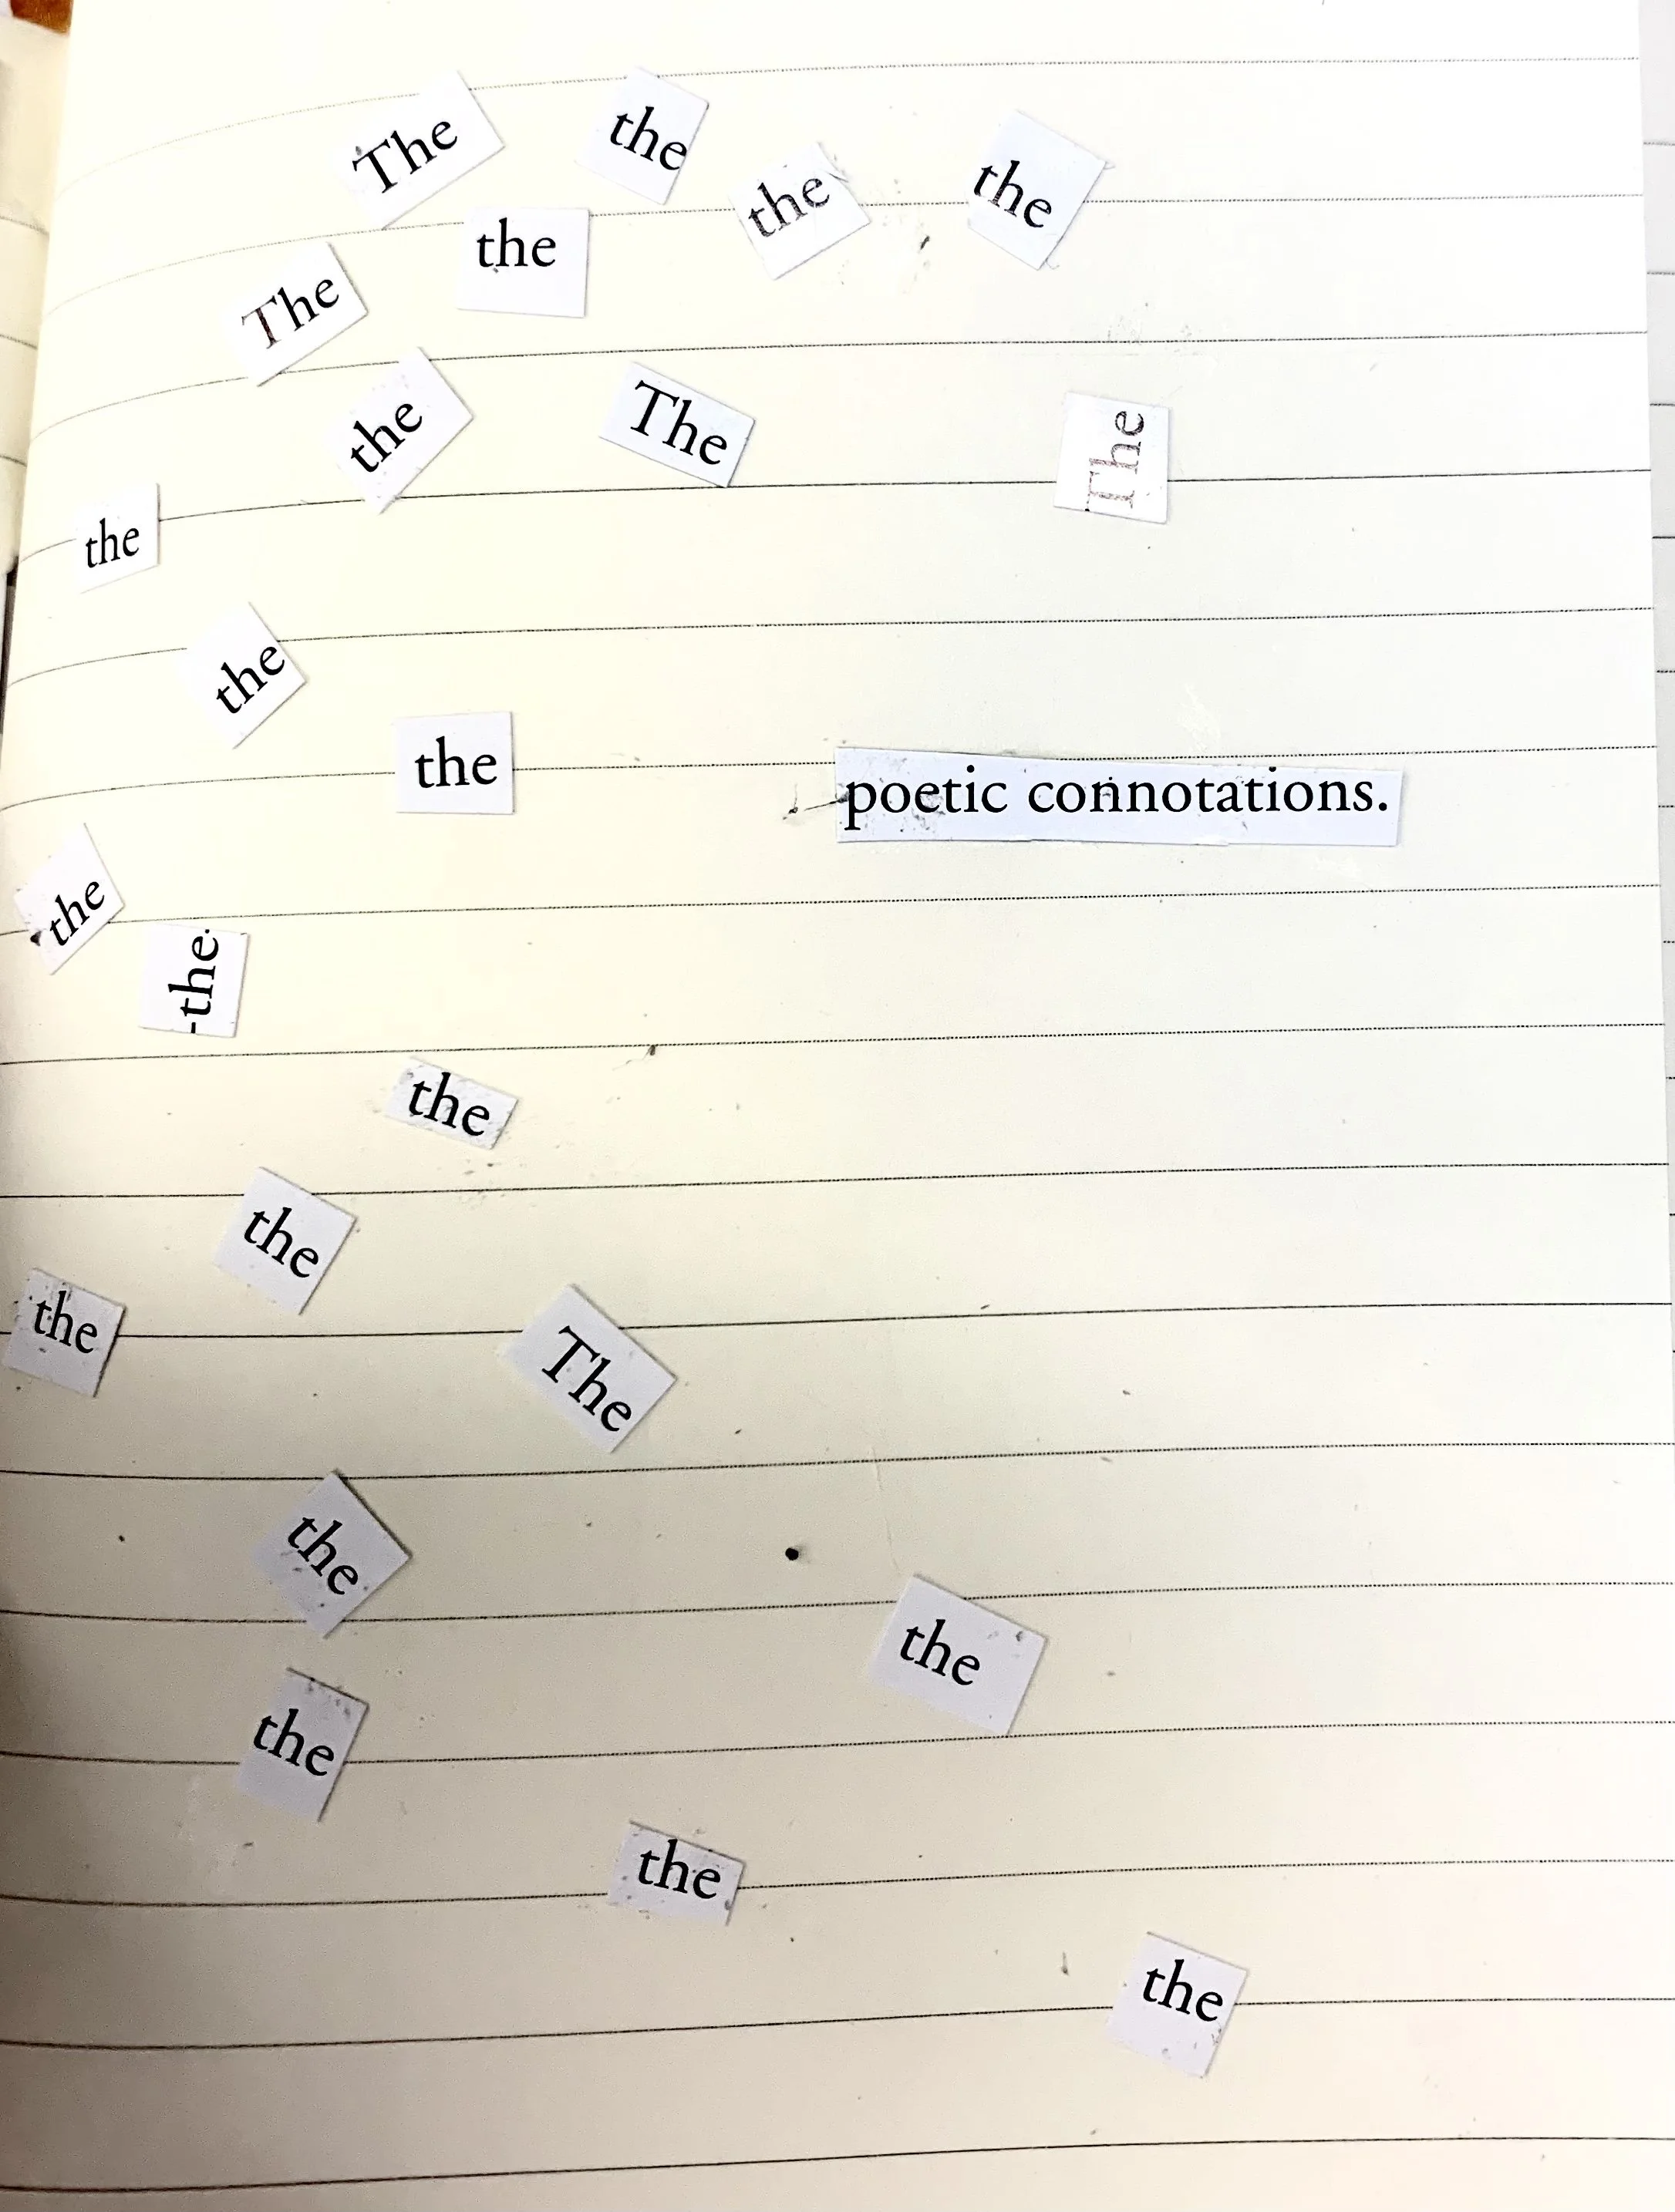 The
the
the
the
The
the
the
The
The
the
the
the
poetic connotations.
the
-the.
the
the
the
The
the
the
the
the
the